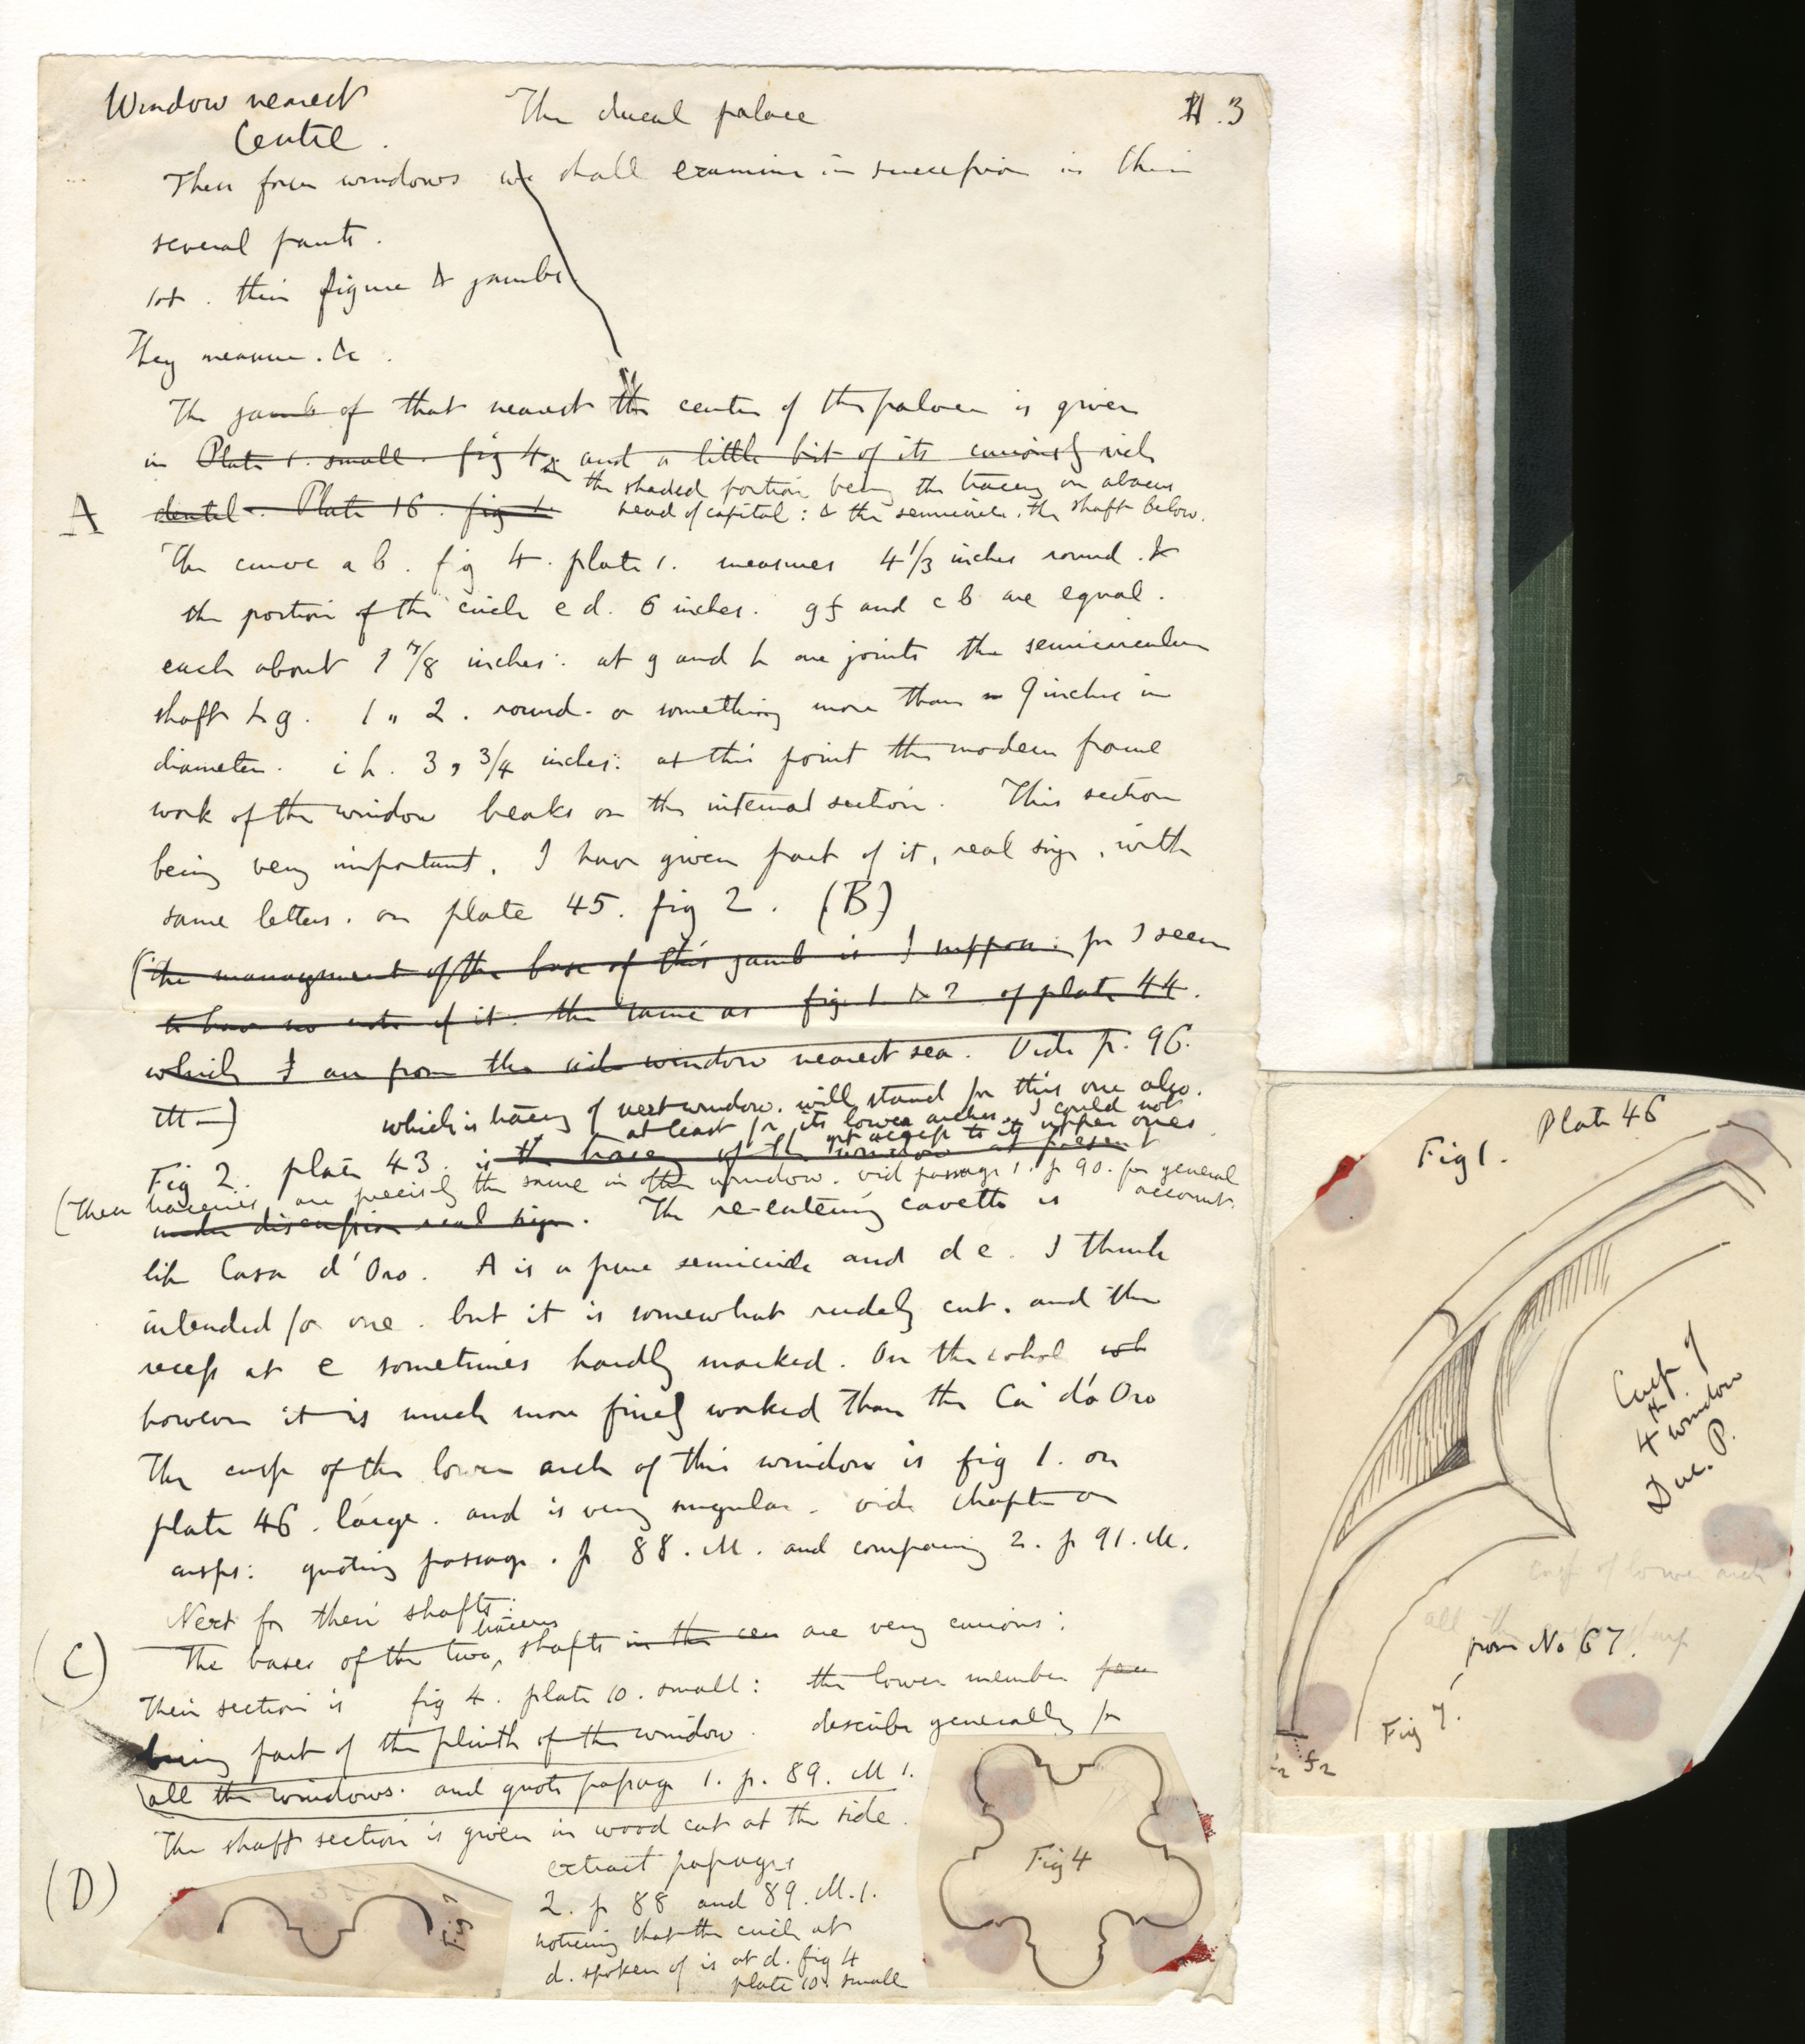 Window nearest
Centre.
The ducal palace
3
These four windows we shall examine in succession in their
several parts.
1st. their figure & jambs
They measure. &c.
The jamb of that nearest the center of the palace is given
in Plate 1. small. fig 4 and a little bit of its curiously rich
the shaded portion being the tracery on abacus
A
dentil. Plate 16. fig 1.
head of capital: & the semicircle. the shaft below.
The curve a b. fig 4. plate 1. measures 4 1/3 inches round. &
the portion of the circle e d. 6 inches. g f and c b are equal.
each about 1 7/8 inches: at g and h are joints the semicircular
shaft h g. 1 " 2. round. or something more than 9 inches in
diameter. i h. 3, 3/4 inches: at this point the modern frame
work of the window breaks on the internal section. This section
being very important, I have given part of it, real size, with
same letters. on plate 45. fig 2. (B)
(the management of the base of this jamb is I suppose: for I seem
to have no note of it. the same as fig. 1 & 2 of plate 44.
which I am from the side window nearest sea. Vide p. 96.
)
which is tracery of next window. will stand for this one also.
at least for its lower arches. I could not
get access to its upper ones
Fig 2. plate 43. is the tracery of the window at present
(These traceries are precisely the same in other window. vid passage 1. p 90. for general
account.
under discussion real size. The re-entering cavetto is
like Casa d'Oro. A is a pure semicircle and d e. I think
intended for one. but it is somewhat rudely cut. and the
recess at e sometimes hardly marked. On the whole
however it is much more finely worked than the Ca' d'Oro
The cusp of the lower arch of this window is fig 1. on
plate 46. large. and is very singular. vide chapter on
cusps: quoting passage. p 88. M. and comparing 2. p 91. M.
Next for their shafts:
tracery
(C)
The bases of the two, shafts in the cen are very curious:
Their section is fig 4. plate 10. small: the lower member
being part of the plinth of the window. describe generally for
all the windows. and quote passage 1. p. 89. M 1.
The shaft section is given in wood cut at the side.
(D)
extract passages
2. p 88 and 89. M. 1.
noticing that the circle at
d. spoken of is at d. fig 4
plate 10. small
Fig 4
Plate 46
Fig 1.
Cusp of
4th window
Duc. P.
cusp of lower arch
all the
from No 67.
Fig 7.